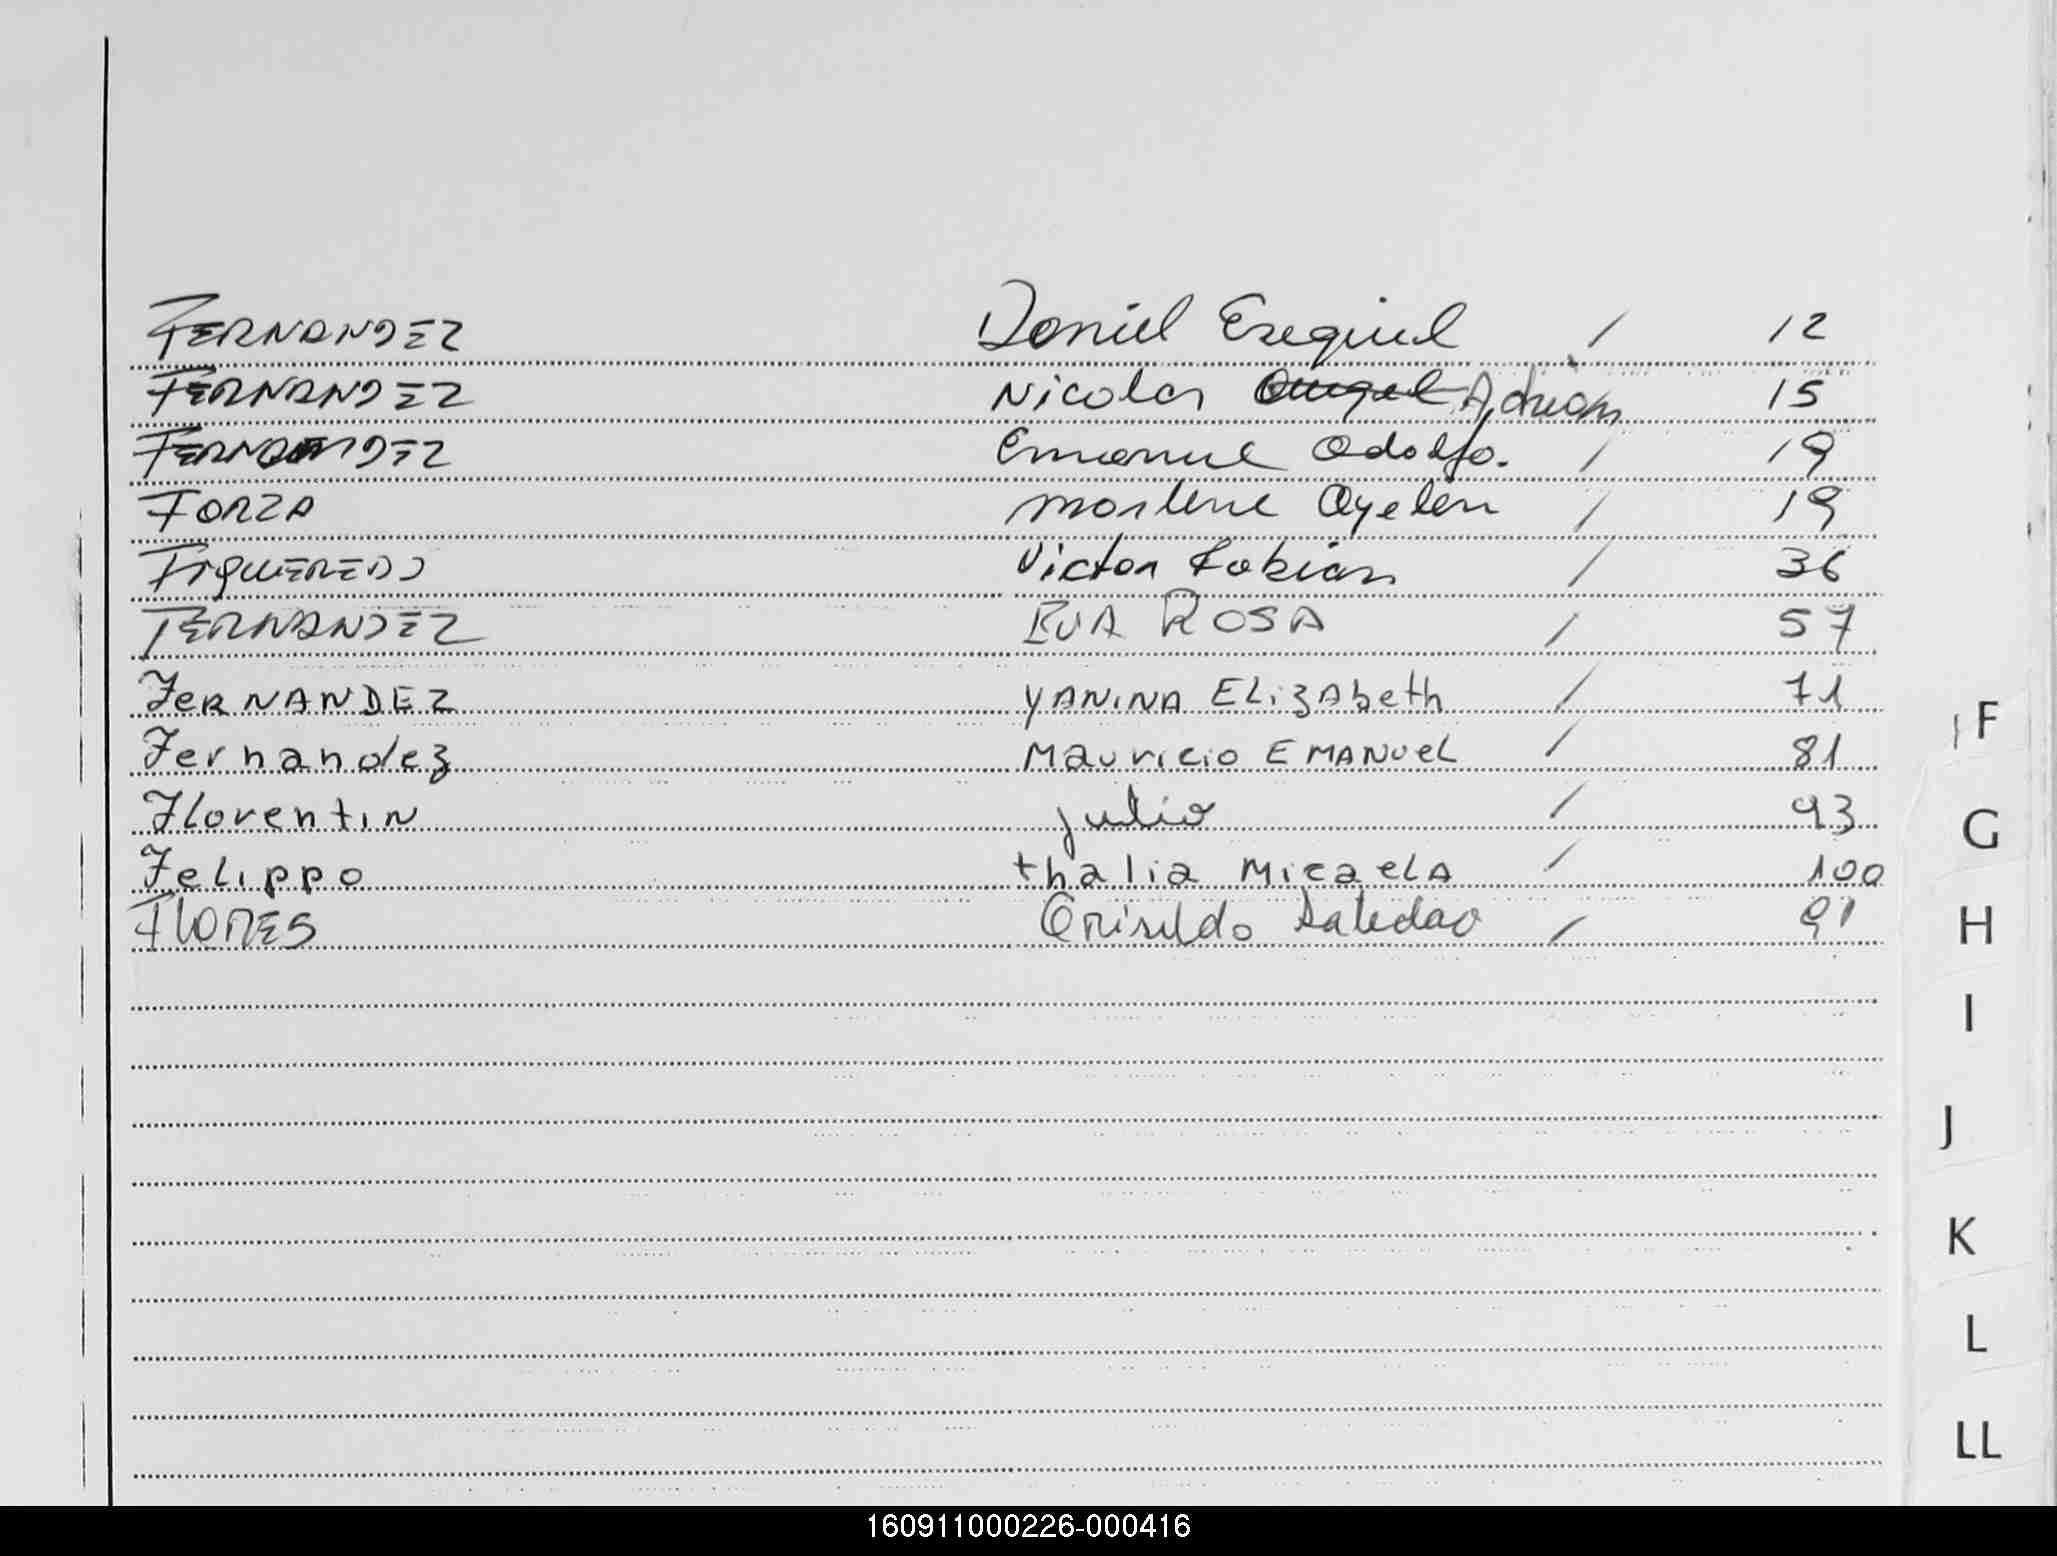 FERNANDEZ Daniel Ezequiel / 12
FERNANDEZ Nicolas Angel Adrian 15
FERNANDEZ Emanuel Adolfo. / 19
FORZA Marlene Ayelen / 19
FIGUEREDO Victor Fabian / 36
FERNANDEZ EVA ROSA / 57
FERNANDEZ YANINA ELizAbeth / 71
Fernandez Mauricio EMANUEL / 81
Florentin Julio / 93
Felippo thalia MicaelA / 100
FLORES / 91
F
G
H
I
J
K
L
LL
160911000226-000416